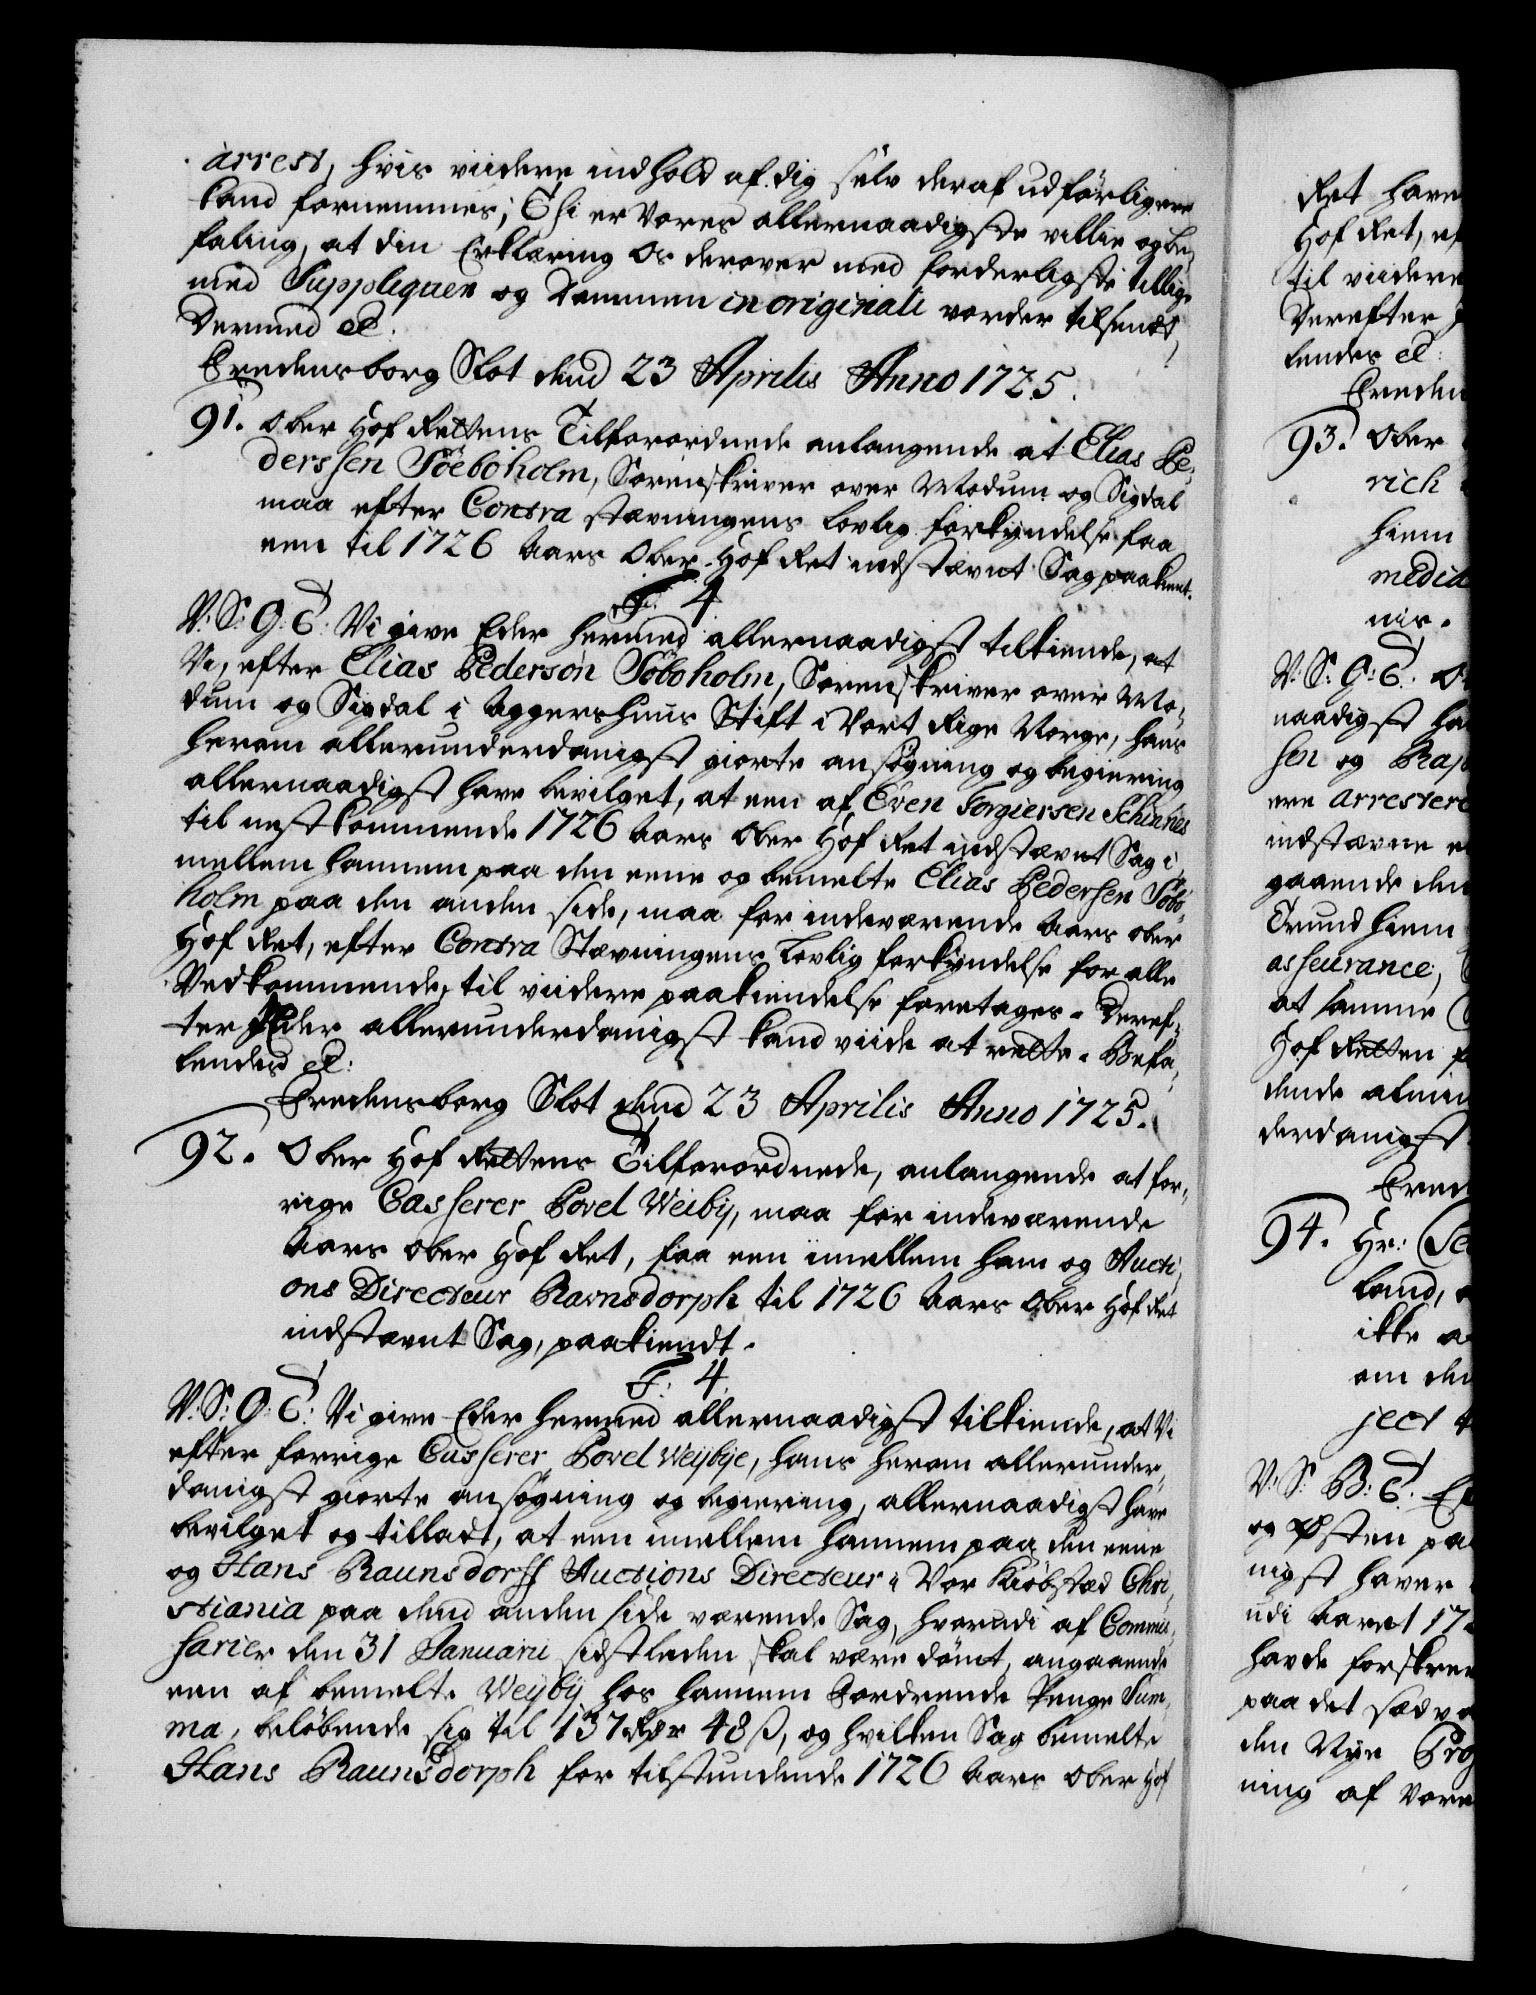 arrest, hvis viidere indhold af dig sielv deraf udførligere
kand fornemmes; Thi er Vores allernaadigste villie og be¬
faling, at din Erklæring Os derover med forderligste tillige
med Suppliquen og Dommen in originali vorder tilsendt,
Dermed etc.
Fredensborg Slot dend 23 Aprilis Anno 1725.
91. Ober Hof Rettens Tilforordnede anlangende at Elias Pe¬
derssen Söeboholm, Sorenskriver over Modum og Sigdal
maa efter Contra stævningens lovlig forkyndelse faa
een til 1726 Aars Ober-Hof Ret indstævnt Sag paakient.
F. 4
V: S: G: T: Vi give Eder hermed allernaadigst tilkiende, at
Vi, efter Elias Pedersøn Söboholm, Sorenskriver over Mo¬
dum og Sigdal i Aggershuus Stift i Vort Rige Norge, hans
herom allerunderdanigst giorte ansøgning og begiering
allernaadigst have bevilget, at een af Even Torgiersen Schinnes
til nestkommende 1726 Aars Ober Hof Ret indstævnt Sag i¬
mellem hannem paa den eene og bemelte Elias Pedersen Söbo¬
holm paa den anden side, maa for indeværende Aars ober
Hof Ret, efter Contra Stævningens Lovlig forkyndelse for alle
Vedkommende, til viidere paakiendelse foretages. Deref¬
ter I Eder allerunderdanigst kand viide at rette. Befa¬
lendes etc:
Fredensborg Slot dend 23 Aprilis Anno 1725.
92. Ober Hof Rettens Tilforordnede, anlangende at for¬
rige Casserer Povel Weiby, maa for indeværende
Aars Ober Hof Ret, faa een imellem ham og Aucti¬
ons Directeur Ravnsdorph til 1726 Aars Ober Hof Ret
indstævnt Sag, paakiendt.
F: 4
V: S: G: T: Vi give Eder hermed allernaadigst tilkiende, at Vi
efter forrige Casserer Povel Weybye, hans herom allerunder¬
danigst giorte ansøgning og begiering, allernaadigst have
bevilget og tilladt, at een imellem hannem paa den eene
og Hans Raunsdorff Auctions Directeur i Vor Kiøbstæd Chri¬
stiania paa dend anden side værende Sag, hvorudi af Commis¬
sarier den 31 Januarii sidstleden skal være dømt, angaaende
een af bemelte Weyby hos hannem Fordrende Penge Sum¬
ma, beløbende sig til 137 Rdr 48 ß, og hvilken Sag bemelte
Hans Raunsdorph for tilstundende 1726 Aars Ober Hof
Ret have
Hof Ret, ef
til viidere
Derefter
lendes etc:
Freden
93. Ober
rich
hiem
media
nir.
V: S: G: T:
naadigst ha
sen og Rap
ere arrester
indstævne e
gaaende den
Trund hiem
asseurance,
at samme
Hof Retten f
dende almin
derdanigst
Fred
94. Hr:
land,
ikke a
om den
ject
V: S: B: T:
og Østen pa
nigst haver
udi Aaret 17
havde forskre
paa det sædva
den Nye Prog
ning af Vore